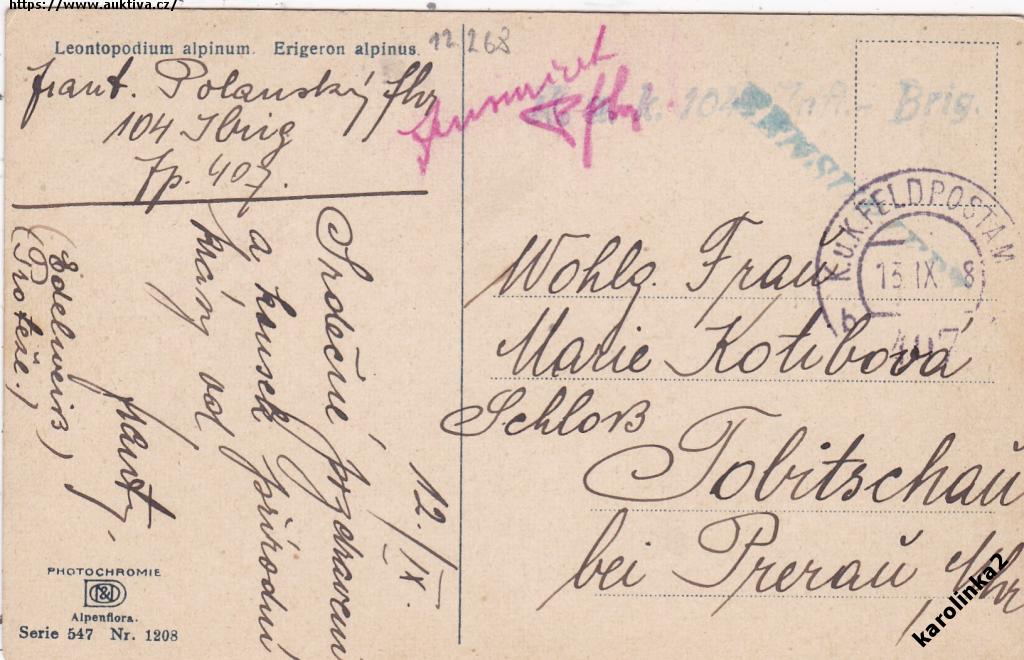 https://www.auktiva.cz/
Leontopodium alpinum. Erigeron alpinus.
12/268
frant. Polanský fhr
104 Ibrig
Fp. 407.
Zensuriert
fhr
K. u. k. 104. Inft.- Brig.
K.U.K. FELDPOSTAM
13 IX 8
b
407
12./IX.
Srdečné pozdravení
a kousek přírodní
krásy od
Franty,
(Edelweiß)
(Protěže.)
Wohlg. Frau
Marie Kotibová
Schloß
Tobitschau
bei Prerau
Mhr
PHOTOCHROMIE
Alpenflora.
Serie 547 Nr. 1208
karolinka2